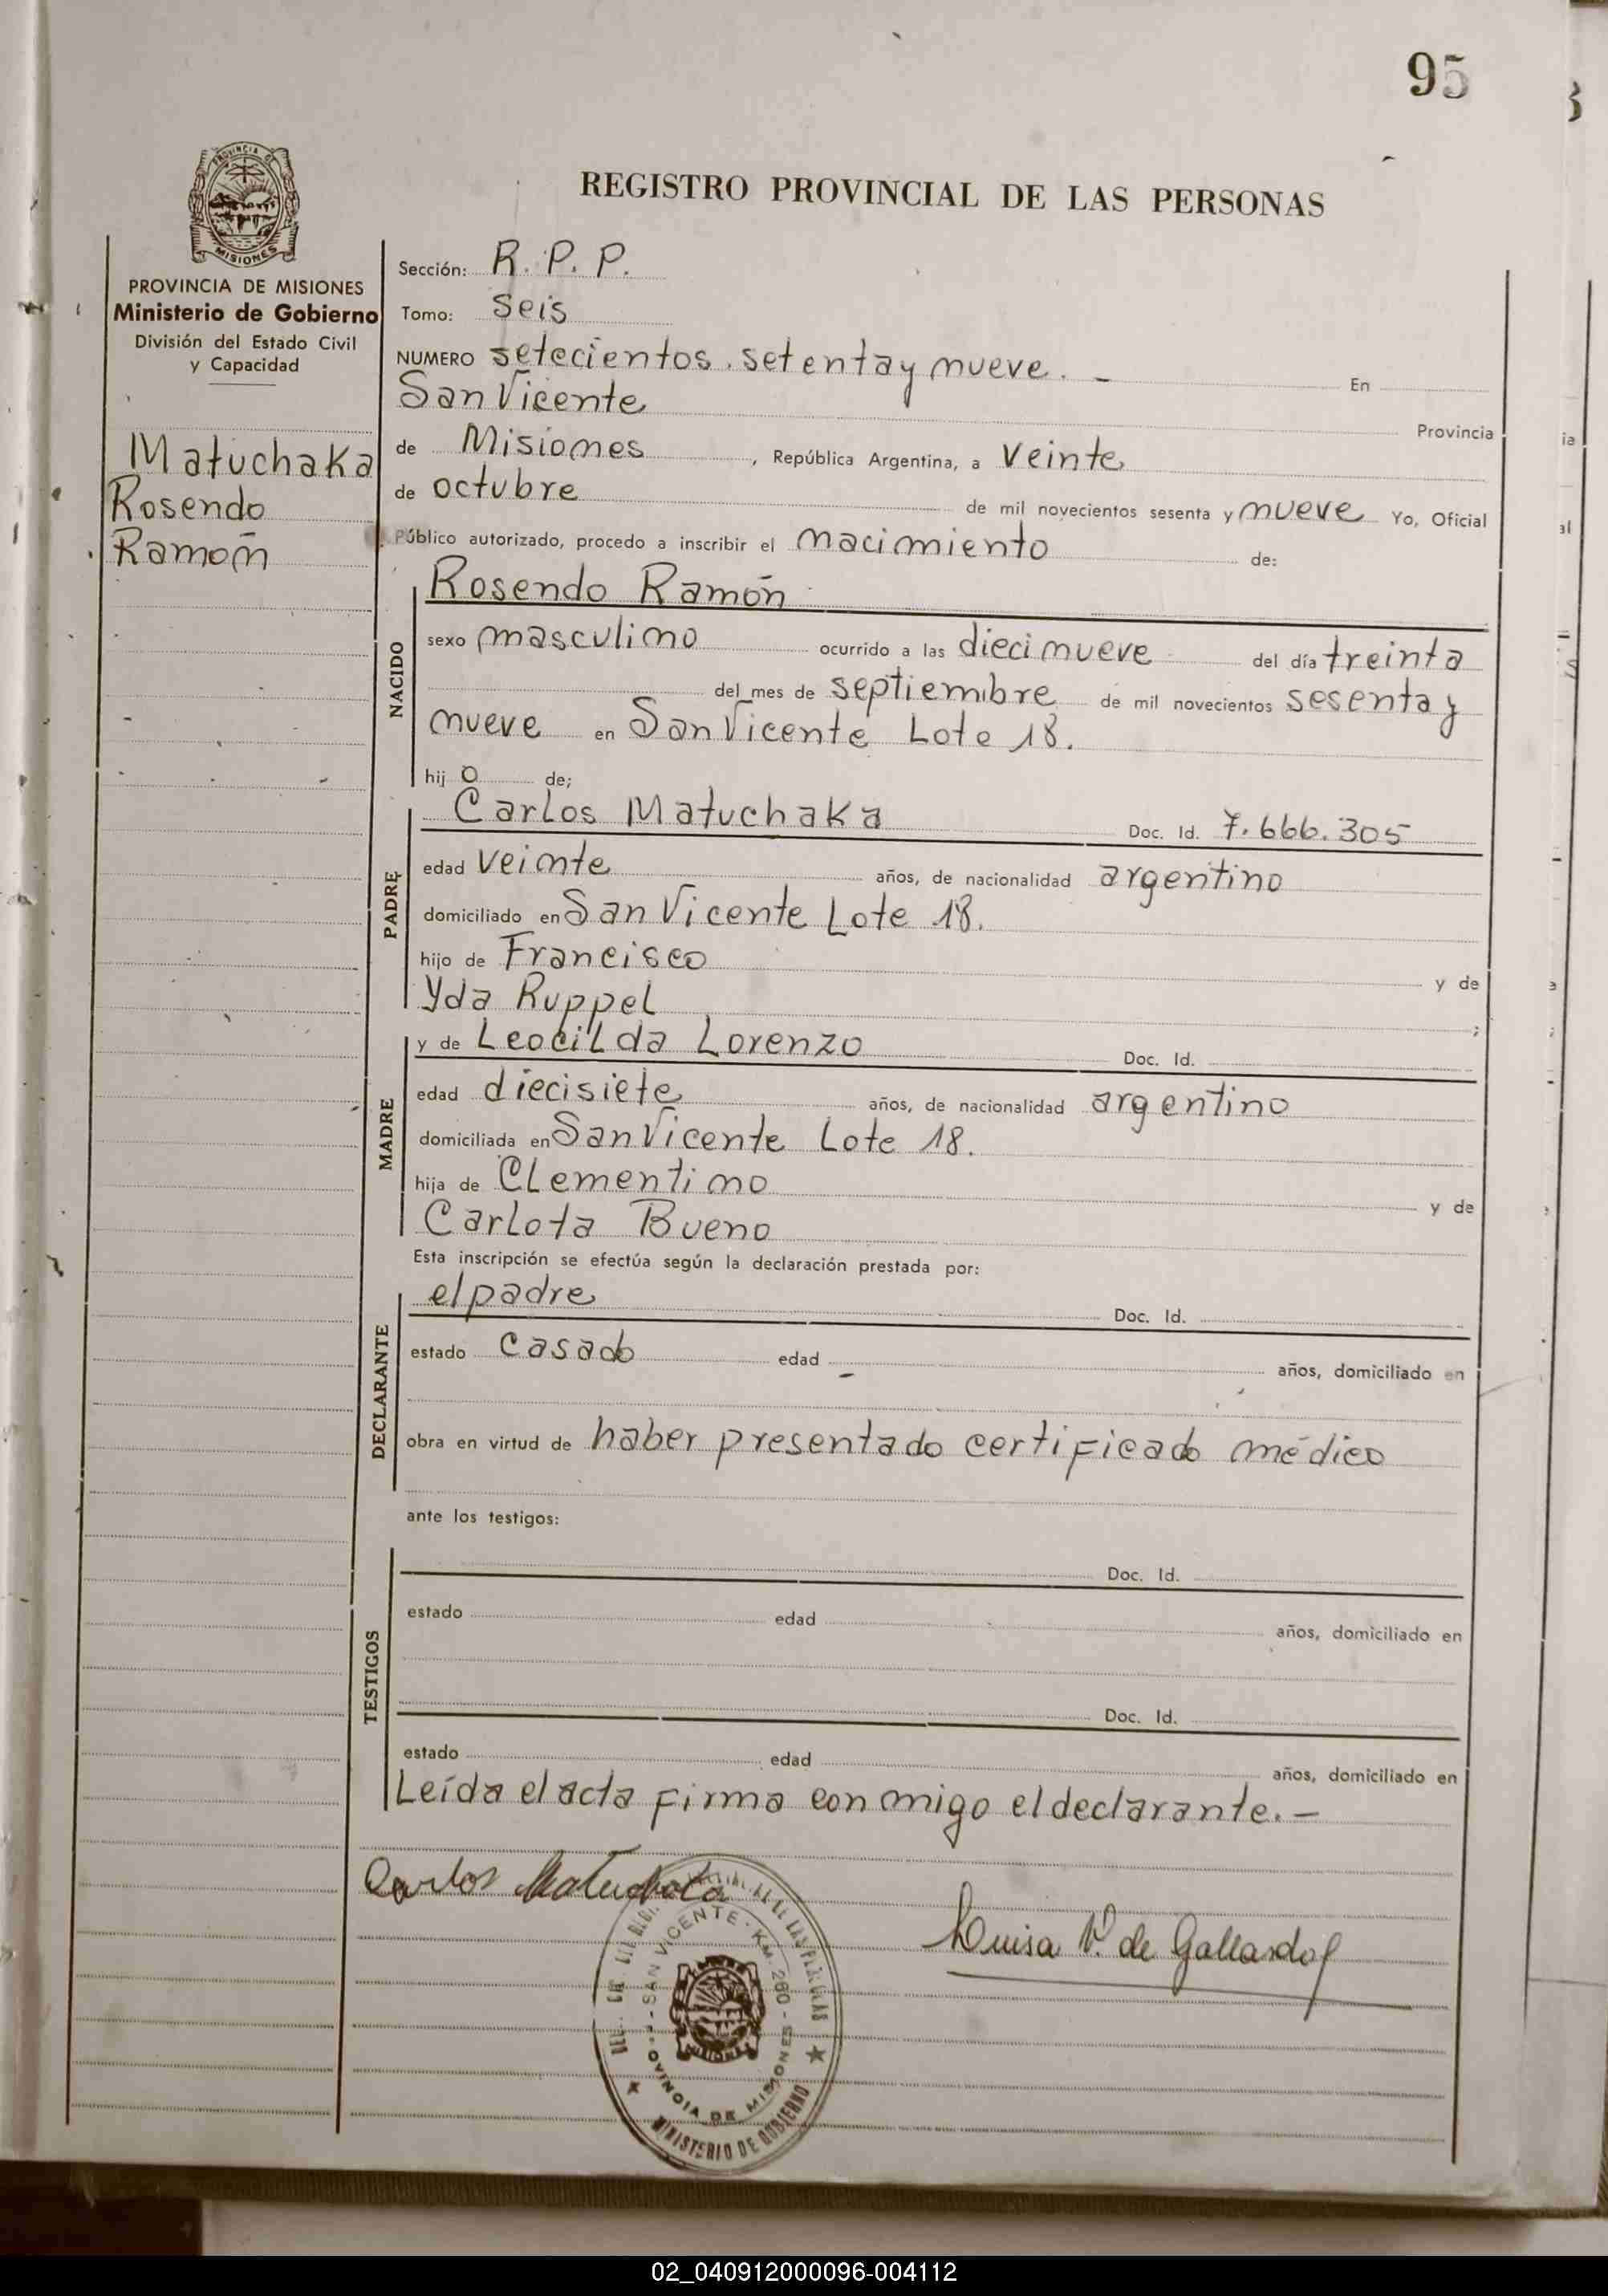 95
REGISTRO PROVINCIAL DE LAS PERSONAS
PROVINCIA DE
MISIONES
PROVINCIA DE MISIONES
Ministerio de Gobierno
División del Estado Civil
y Capacidad
Matuchaka
Rosendo
Ramón
Sección: R. P. P.
Tomo: Seis
NUMERO setecientos setenta y nueve. – En
San Vicente Provincia
de Misiones, República Argentina, a veinte
de octubre de mil novecientos sesenta y nueve Yo, Oficial
Público autorizado, procedo a inscribir el nacimiento de:
NACIDO
Rosendo Ramón
sexo masculino ocurrido a las diecinueve del día treinta
del mes de septiembre de mil novecientos sesenta y
nueve en San Vicente Lote 18.
hij o de;
PADRE
Carlos Matuchaka Doc. Id. 7.666.305
edad veinte años, de nacionalidad argentino
domiciliado en San Vicente Lote 18.
hijo de Francisco y de
Yda Ruppel ;
MADRE
y de Leocilda Lorenzo Doc. Id.
edad diecisiete años, de nacionalidad argentino
domiciliada en San Vicente Lote 18.
hija de Clementino y de
Carlota Bueno
Esta inscripción se efectúa según la declaración prestada por:
DECLARANTE
el padre Doc. Id.
estado casado edad – años, domiciliado en
obra en virtud de haber presentado certificado médico
ante los testigos:
TESTIGOS
Doc. Id.
estado edad años, domiciliado en
Doc. Id.
estado edad años, domiciliado en
Leída el acta firma conmigo el declarante. –
Carlos Matuchaka
Luisa V. de Gallardo
SAN VICENTE - Km. 260 -
PROVINCIA DE MISIONES
MINISTERIO DE GOBIERNO
02_040912000096-004112